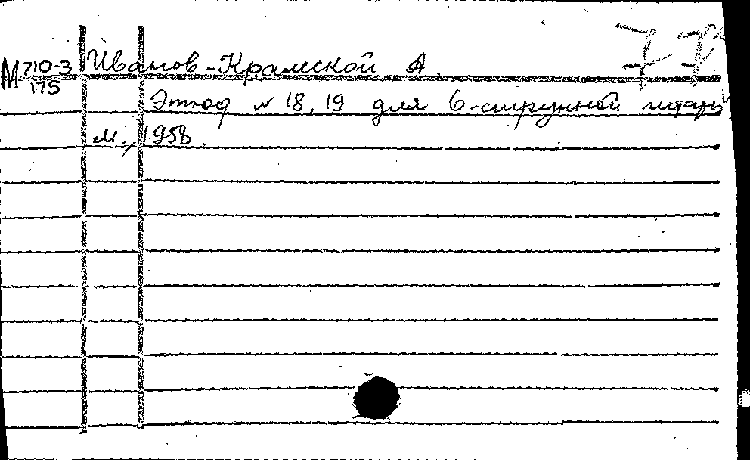 77
М 710-3 Иванов-Крамской А.
175
Этюд № 18, 19 для 6-струнной гитары
М., 1958.